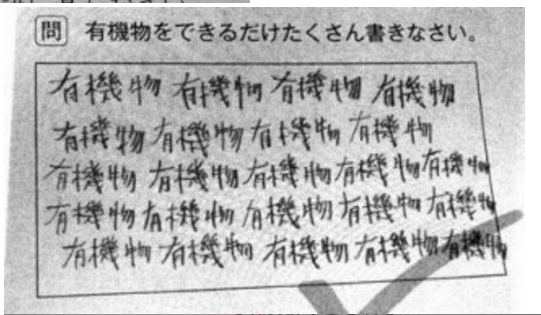 問 有機物をできるだけたくさん書きなさい。
有機物 有機物 有機物 有機物
有機物 有機物 有機物 有機物
有機物 有機物 有機物 有機物 有機物
有機物 有機物 有機物 有機物 有機物
有機物 有機物 有機物 有機物 有機物